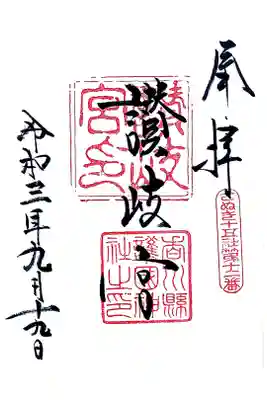 奉拝
さぬき十五社第十二番
讃岐宮
讃岐
宮印
香川縣
護國神
社之印
令和三年九月十九日